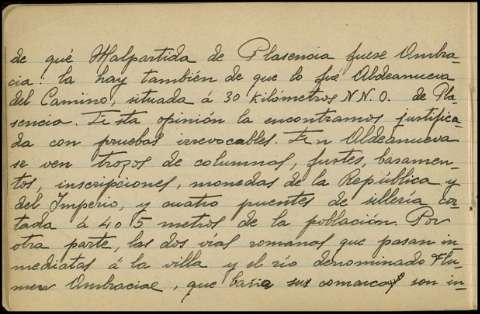 de qué Malpartida de Plasencia fuese Ambra-
cia: la hay también de que lo fué Aldeanueva
del Camino, situada á 30 kilómetros N.N.O. de Pla-
sencia. Esta opinión la encontramos justifica-
da con pruebas irrevocables. En Aldeanueva
se ven trozos de columnas, fustes, basamen-
tos, inscripciones, monedas de la República y
del Imperio, y cuatro puentes de sillería cor-
tada á 4 o 5 metros de la población. Por
otra parte, las dos vías romanas que pasan in-
mediatas á la villa y el río denominado Flu-
men Ambraciae, que baña sus comarcas son in-